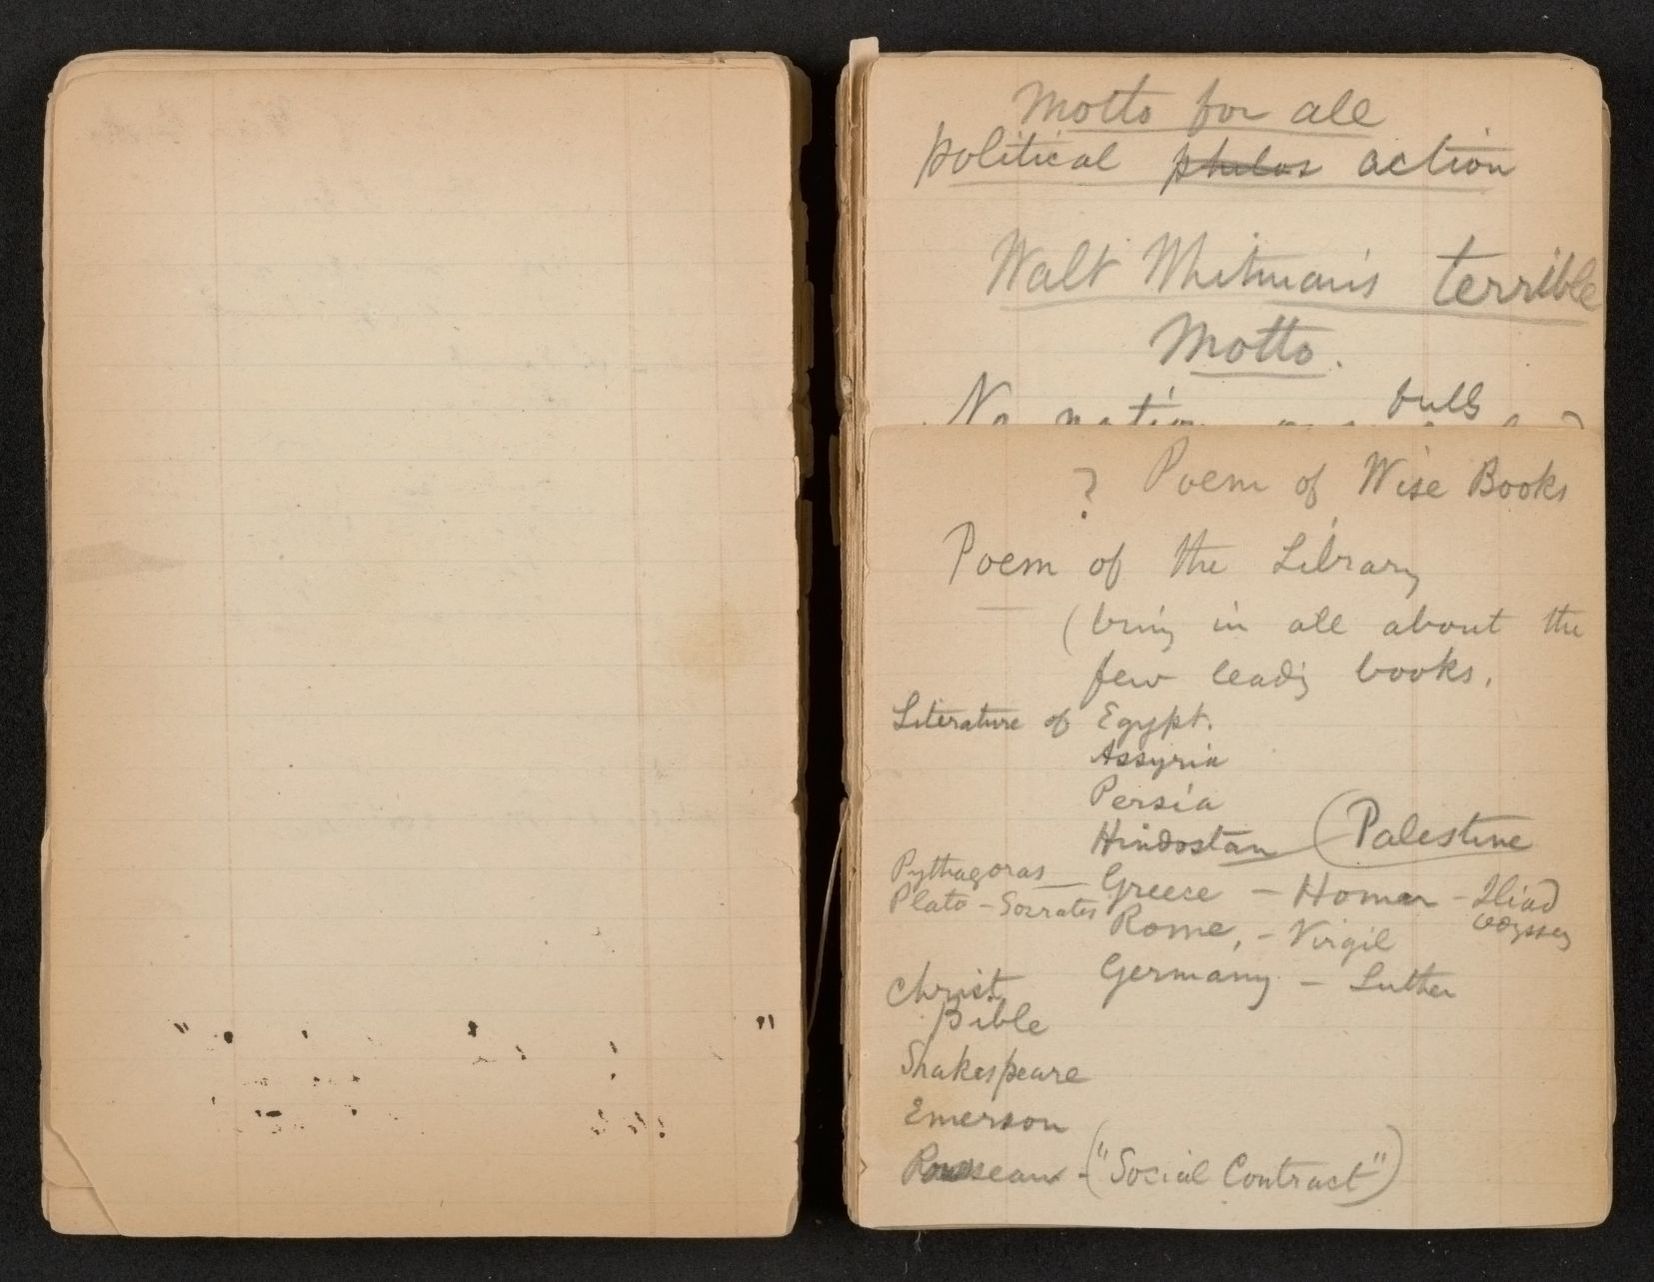 Motto for all
political philos action
Walt Whitman's terrible
Motto.
bulb
No nation
? Poem of Wise Books
Poem of the Library
(bring in all about the
few leadg books.
Literature of Egypt.
Assyria
Persia
Hindostan (Palestine
Pythagoras
Plato - Socrates — Greece - Homer - Iliad
Odyssey
Rome, - Virgil
Germany - Luther
Christ
Bible
Shakespeare
Emerson
Rousseau - ("Social Contract")